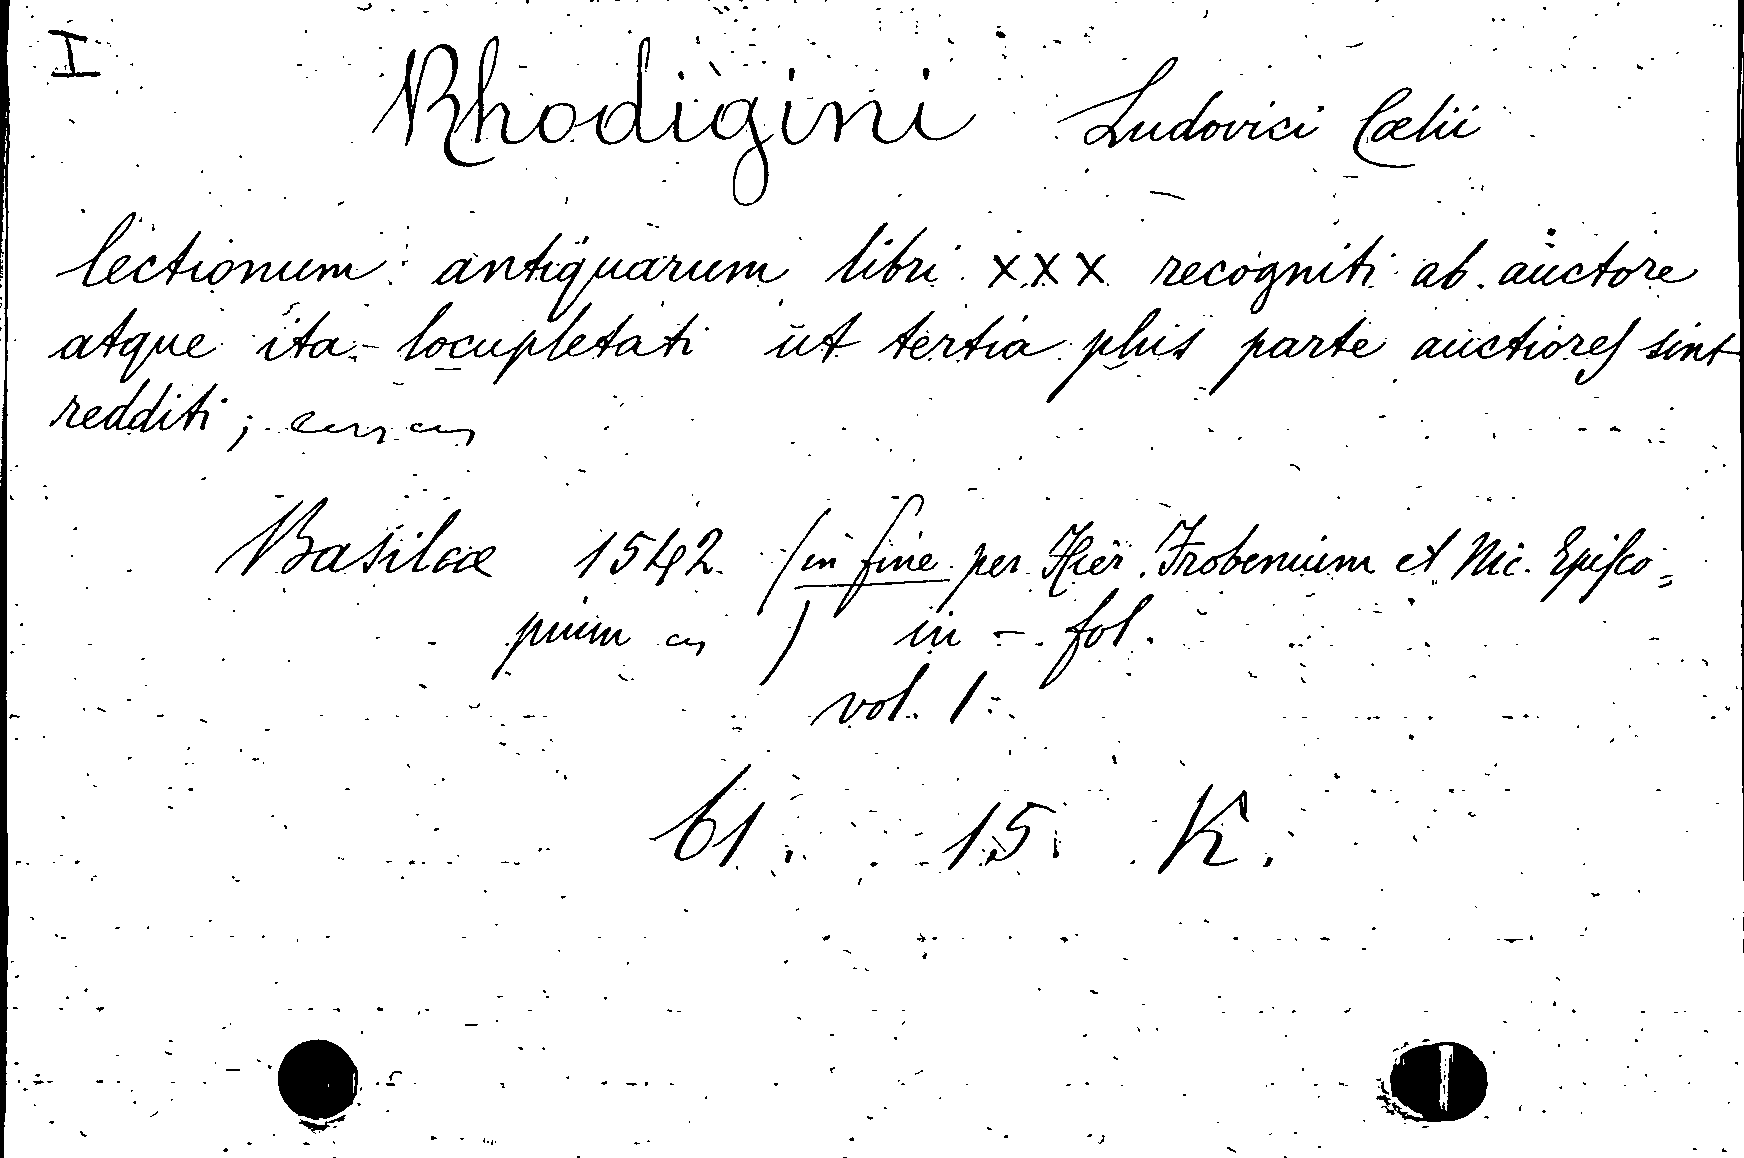 I
Rhodigini Ludovici Cælii
lectionum antiquarum libri XXX recogniti ab auctore
atque ita locupletati ut tertia plus parte auctiores sint
redditi;
Basileæ 1542 (in fine per Hier. Frobenium et Nic. Episco=
pium ) in - fol.
vol. 1
61. 15. K.